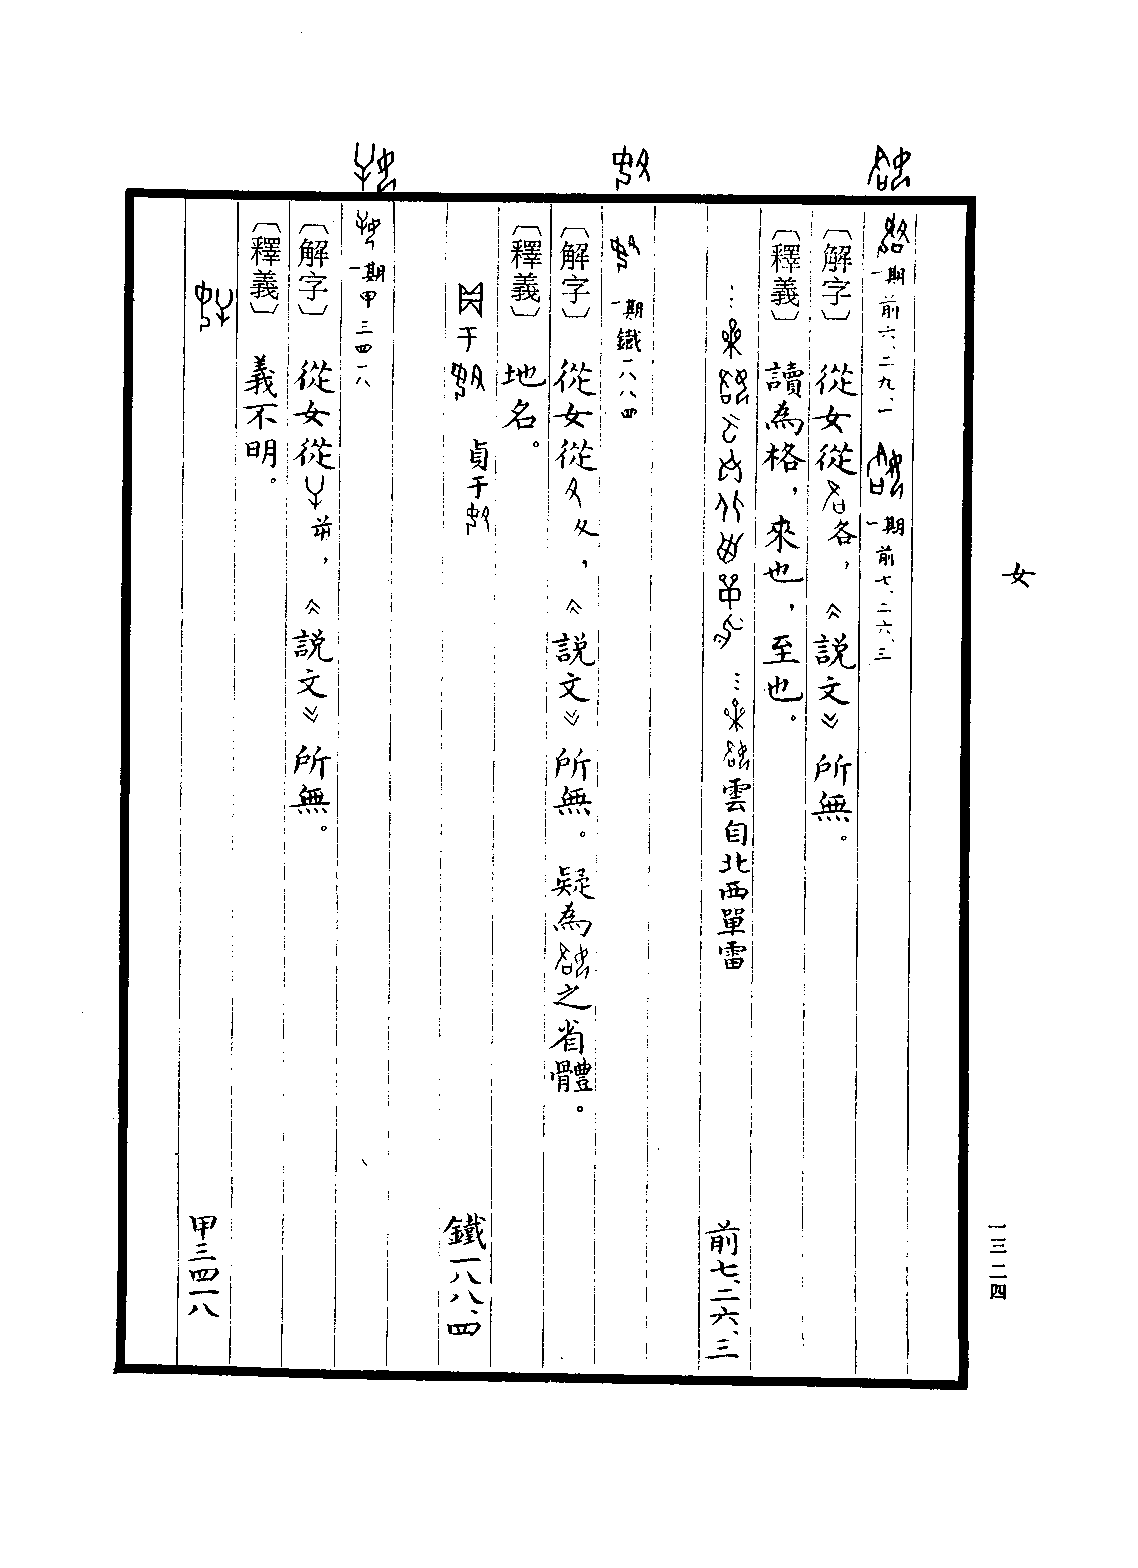 女
一三二四
一期前六、二九、一 一期前七、二六、三
〔解字〕 從女從各，《説文》所無。
〔釋義〕 讀為格，來也，至也。
…… 雲自北西單雷 前七、二六、三
一期鐵一八八四
〔解字〕 從女從夂，《説文》所無。疑為之省體。
〔釋義〕 地名。
于 貞于 鐵一八八、四
一期甲三四一八
〔解字〕 從女從，《説文》所無。
〔釋義〕 義不明。
甲三四一八